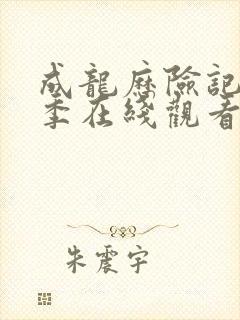 成龍歷險記
季在綫觀看
朱震宇